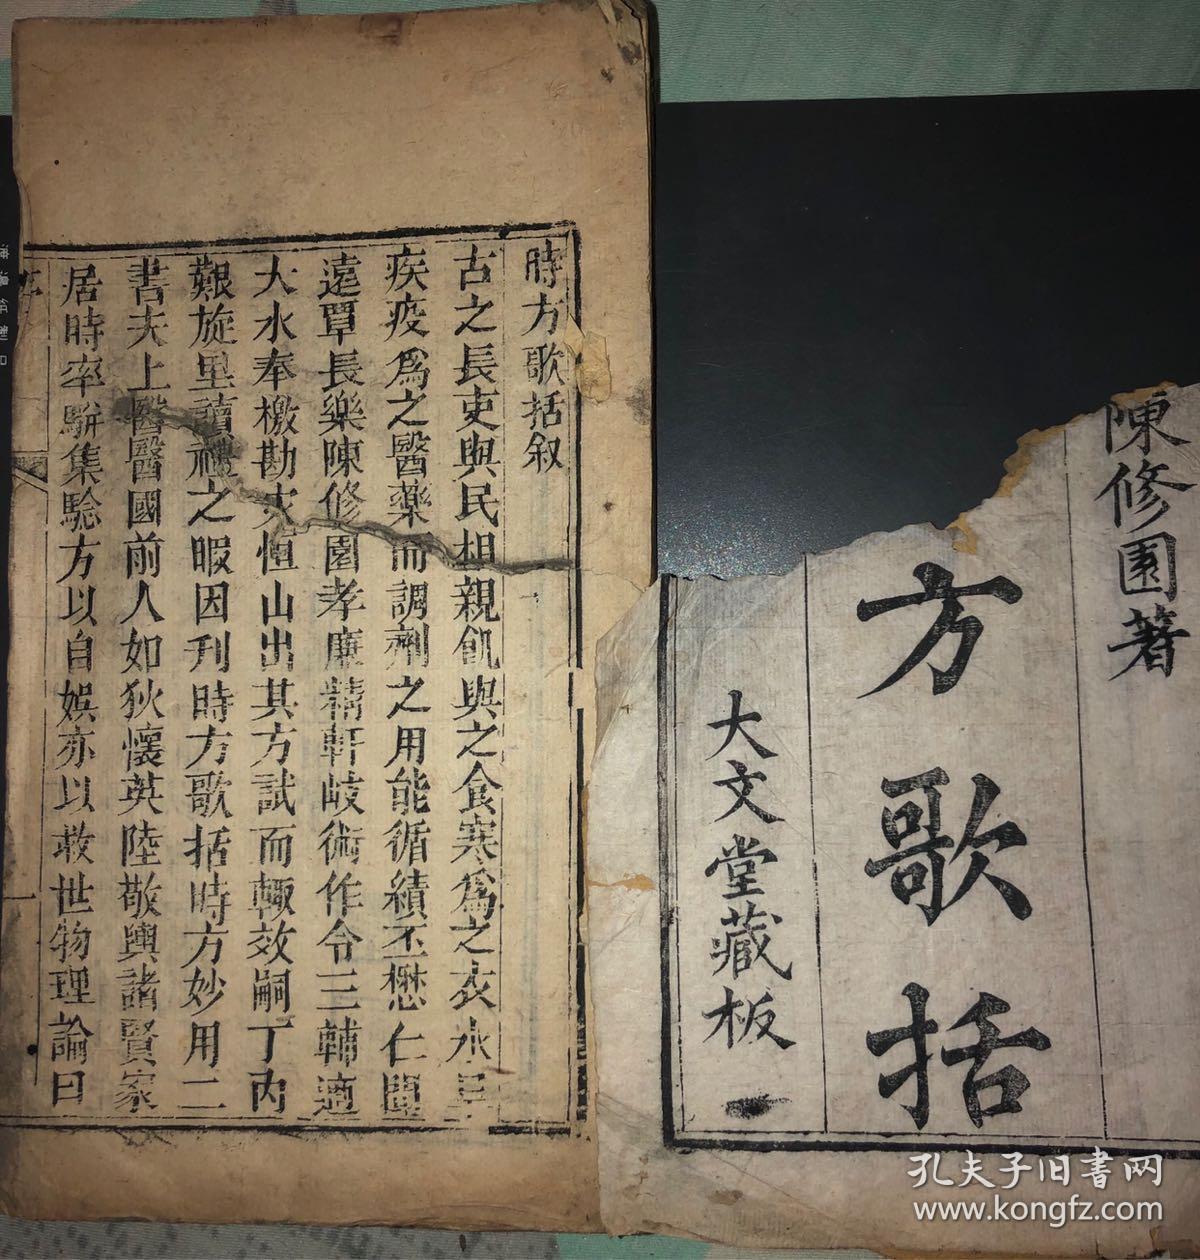 陳修園著
方歌括
大文堂藏板
時方歌括叙
古之長吏與民相親飢與之食寒爲之衣水旱
疾疫爲之醫藥而調劑之用能循績丕懋仁聞
遠覃長樂陳修園孝廉精軒岐術作令三輔適
大水奉檄勘灾恒山出其方試而輙效嗣丁内
艱旋里讀禮之暇因刋時方歌括時方妙用二
書夫上醫醫國前人如狄懷英陸敬輿諸賢家
居時率騈集騐方以自娛亦以救世物理論曰
孔夫子旧书网
www.kongfz.com